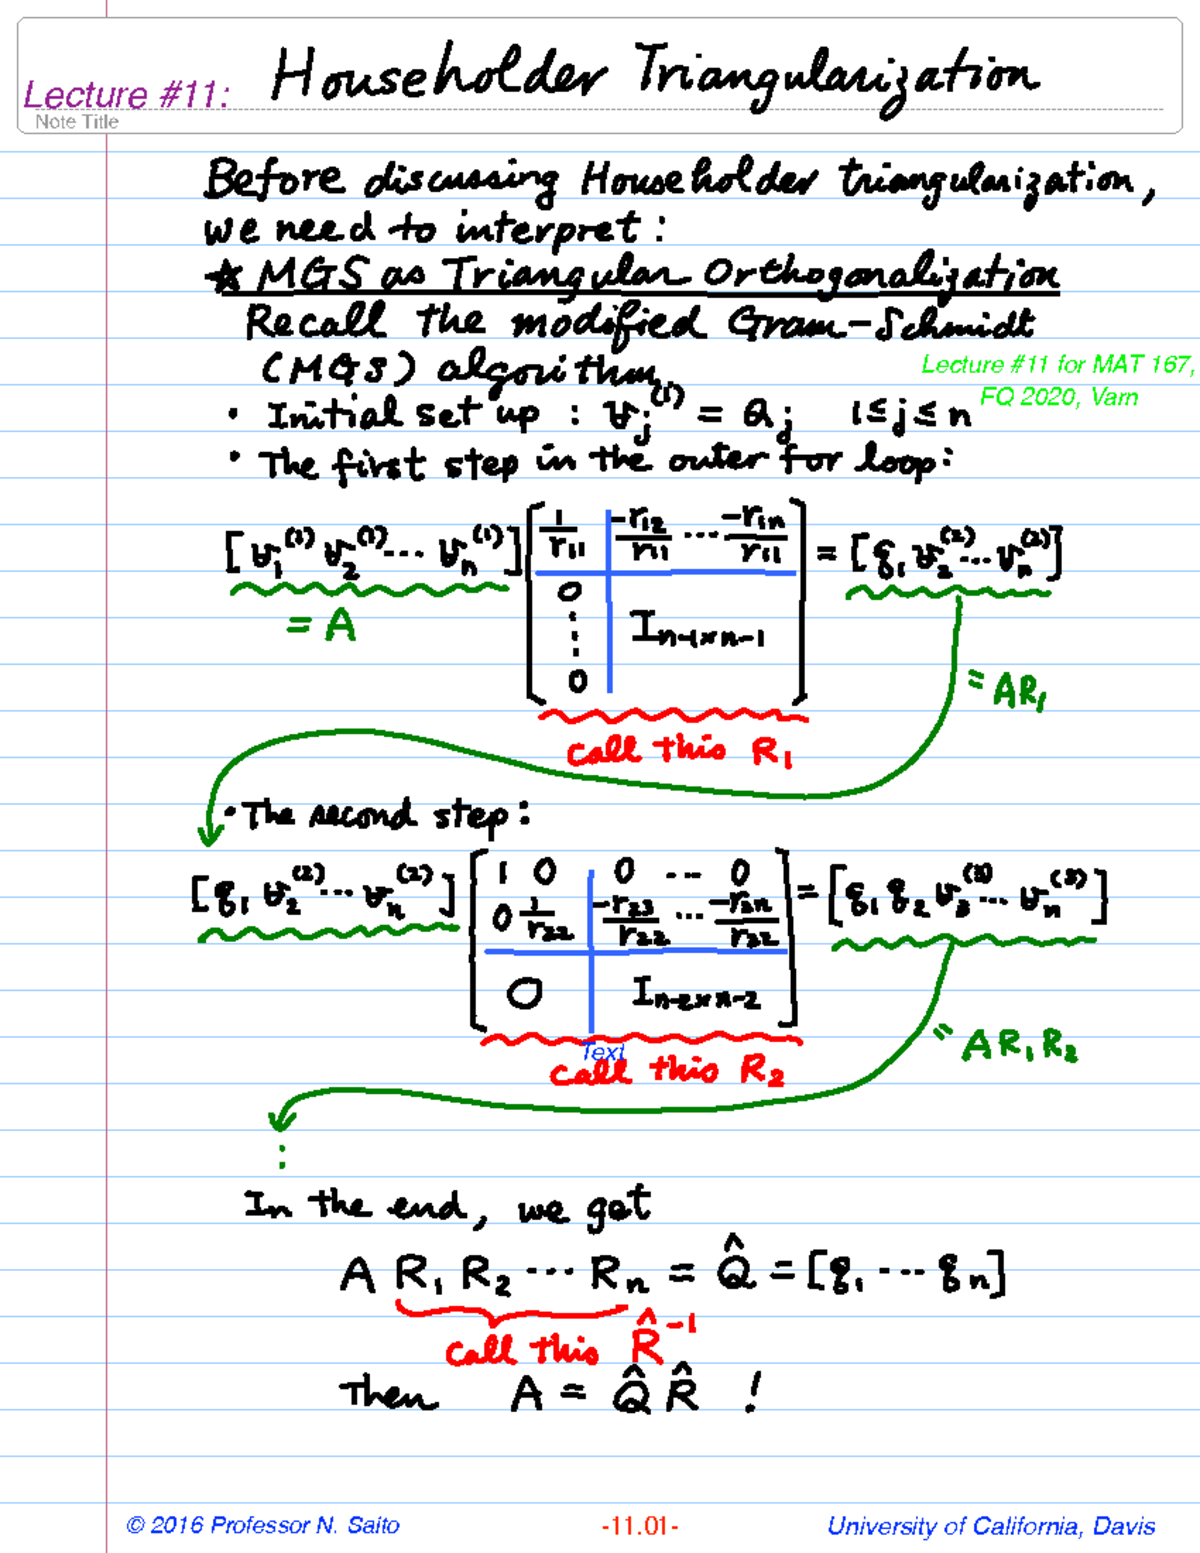 Lecture #11: Householder Triangularization
Note Title
Before discussing Householder triangularization,
we need to interpret :
☆ MGS as Triangular Orthogonalization
Recall the modified Gram-Schmidt
(MGS) algorithm.
Lecture #11 for MAT 167,
FQ 2020, Varn
• Initial set up : v_j^(1) = a_j 1 ≤ j ≤ n
• The first step in the outer for loop:
[v_1^(1) v_2^(1) ... v_n^(1)] [1/r_11 | -r_12/r_11 ... -r_1n/r_11 ; 0 ⋮ 0 | I_n-1×n-1] = [q_1 v_2^(2) ... v_n^(2)]
= A
= AR_1
call this R_1
• The second step:
[q_1 v_2^(2) ... v_n^(2)] [1 0 | 0 ... 0 ; 0 1/r_22 | -r_23/r_22 ... -r_2n/r_22 ; 0 | I_n-2×n-2] = [q_1 q_2 v_3^(3) ... v_n^(3)]
Text
= AR_1R_2
call this R_2
⋮
In the end, we get
A R_1 R_2 ... R_n = Q̂ = [q_1 ... q_n]
call this R̂^-1
Then A = Q̂ R̂ !
© 2016 Professor N. Saito
-11.01-
University of California, Davis